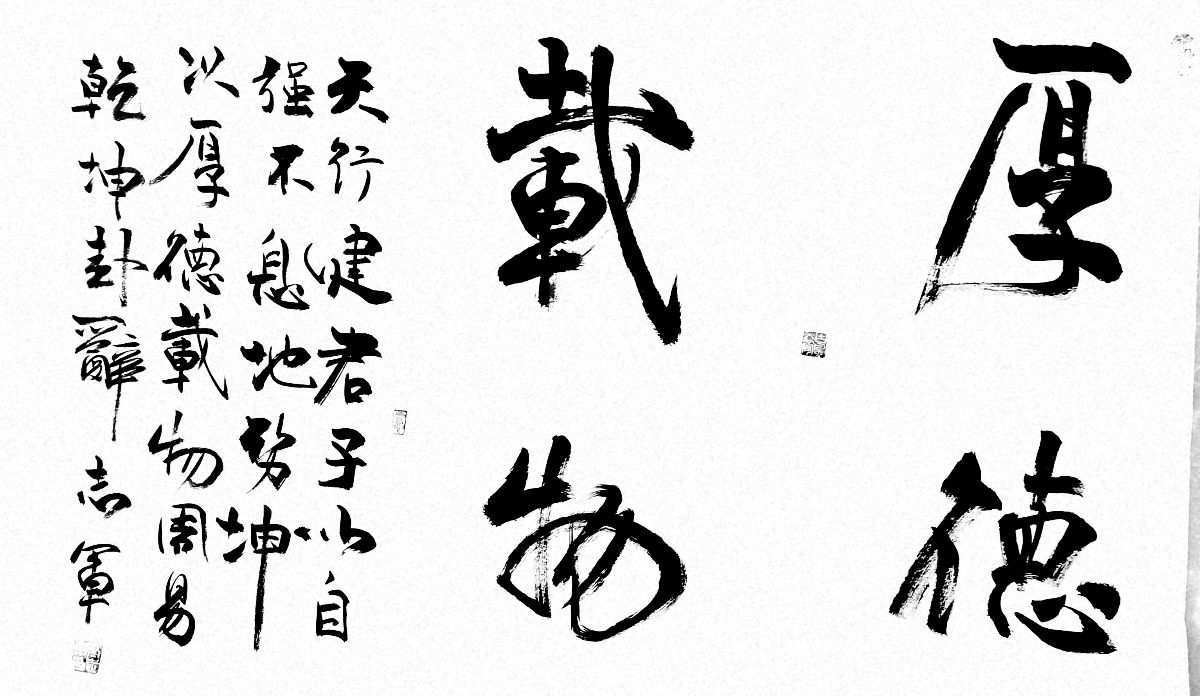 厚德
載物
天行健君子以自
强不息地势坤
以厚德載物周易
乾坤卦辭志軍